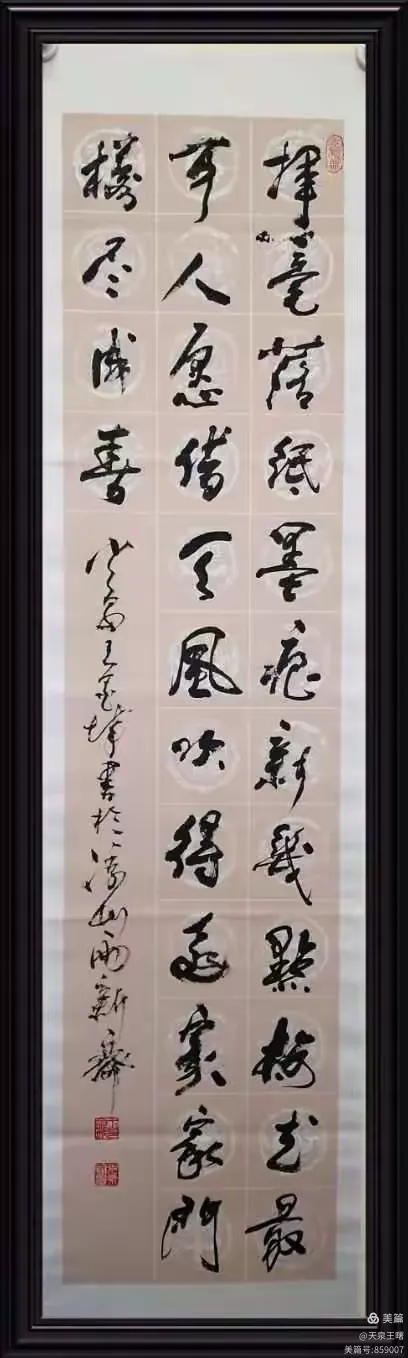 揮毫落紙墨痕新幾點梅花最
可人愿借天風吹得遠家家門
尽成春
王金書於山雨新齋
美篇
@天泉王曙
美篇号:859007